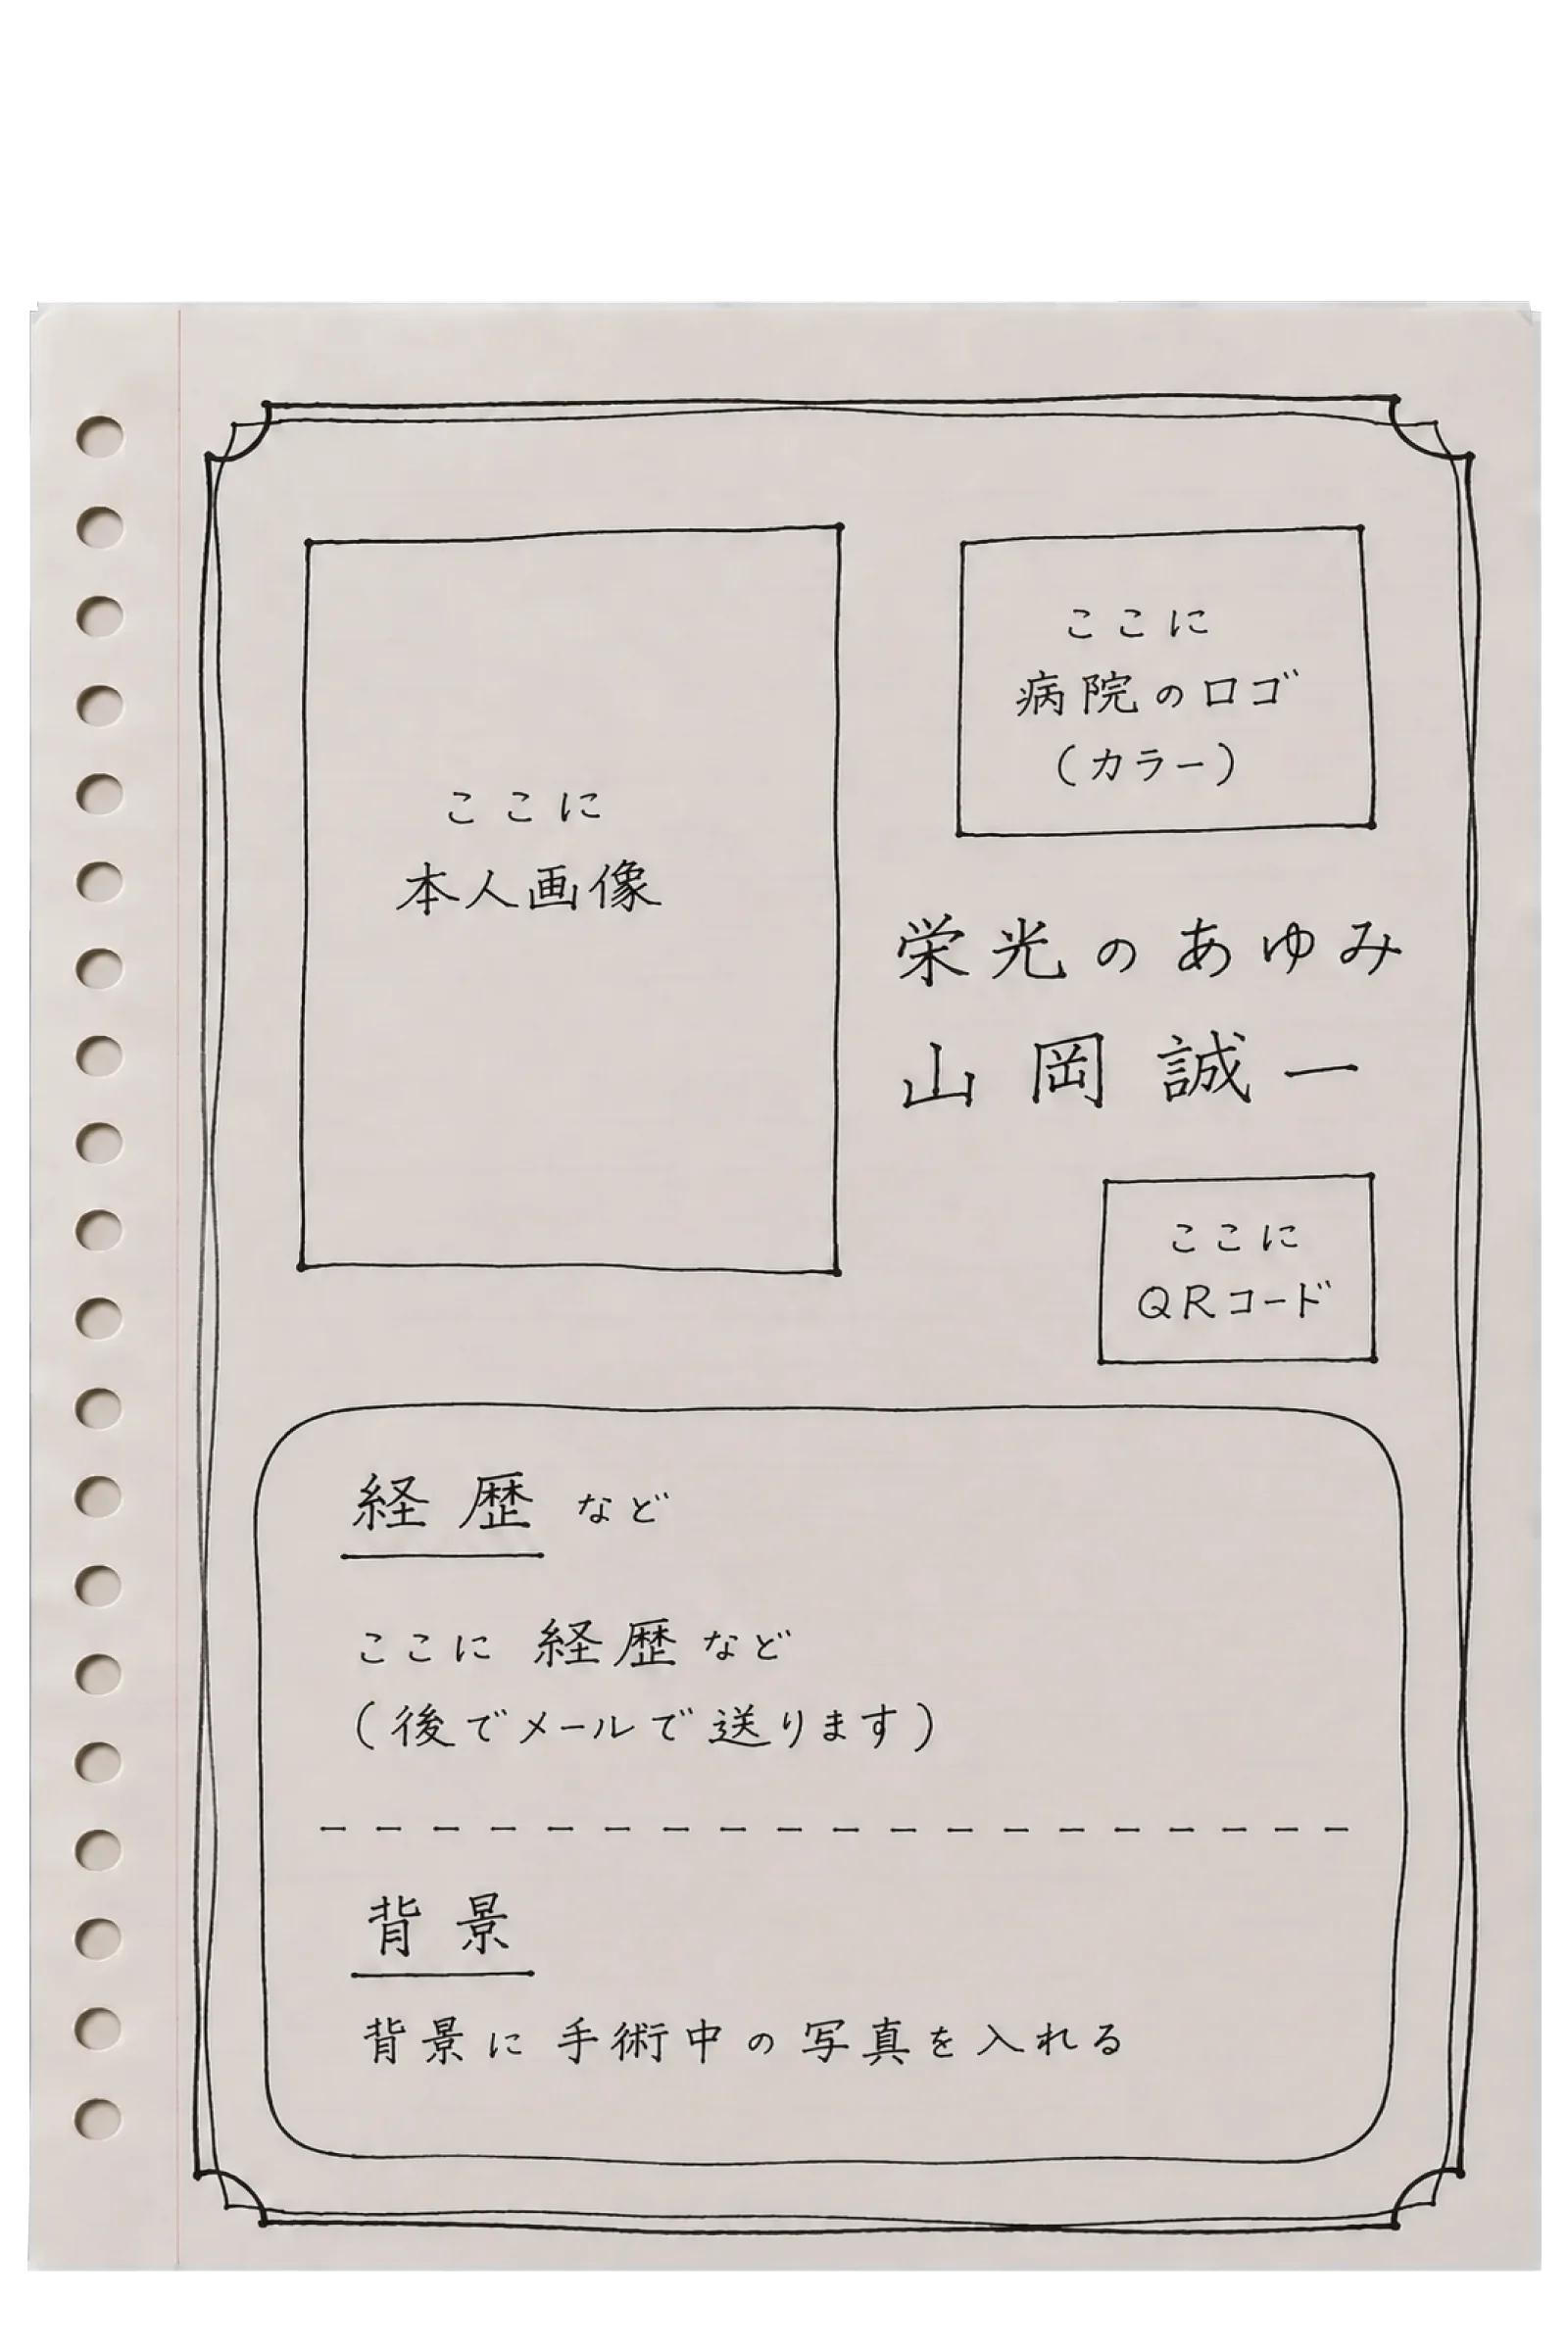 ここに
本人画像
ここに
病院のロゴ
(カラー)
栄光のあゆみ
山岡誠一
ここに
QRコード
経歴など
ここに 経歴など
(後でメールで送ります)
背景
背景に 手術中の写真を入れる